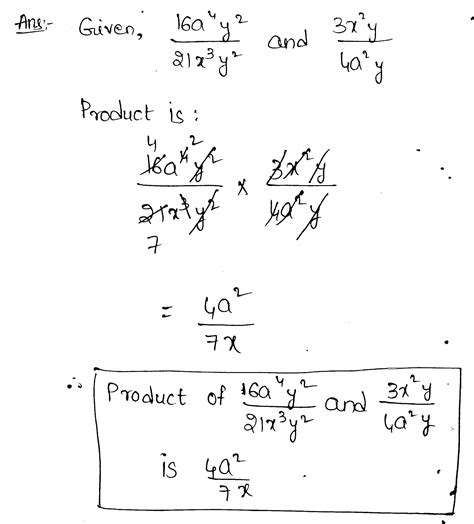 Ans:- Given, 16a⁴y²/21x³y² and 3x²y/4a²y
Product is :
4 2
16a⁴y²/21x³y² × 3x²y/4a²y
7
= 4a²/7x
∴ Product of 16a⁴y²/21x³y² and 3x²y/4a²y
is 4a²/7x.